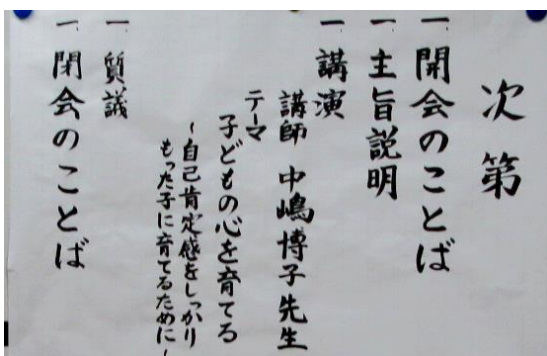 次第
一、開会のことば
一、主旨説明
一、講演
講師 中嶋博子先生
テーマ
子どもの心を育てる
~自己肯定感をしっかり
もった子に育てるために~
一、質議
一、閉会のことば